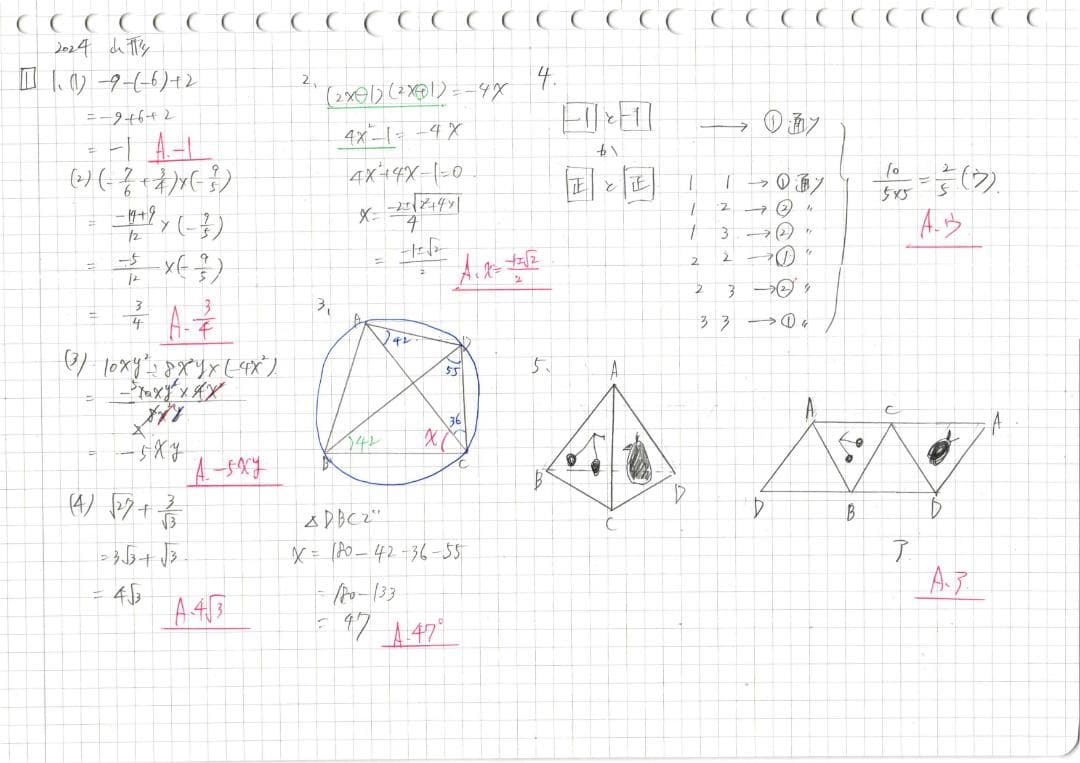 2024 山形
1 1.(1) -9-(-6)+2
= -9+6+2
= -1 A.-1
(2) (-7/6+3/4)×(-9/5)
= (-14+9)/12 × (-9/5)
= -5/12 ×(-9/5)
= 3/4 A.3/4
(3) 10xy²÷8x²y×(-4x²)
= -5xy
A.-5xy
(4) √27 + 3/√3
= 3√3+√3
= 4√3
A.4√3
2. (2x-1)(2x+1)=-4x
4x²-1=-4x
4x²+4x-1=0
= (-1±√2)/2
A.x=(-1±√2)/2
3.
A 42 D
55
36
B 42 x C
△DBCで
x = 180-42-36-55
= 180-133
= 47 A.47°
4.
-1と-1 → ①通り
か
正と正 1 1 → ①通り
1 2 → ② 〃
1 3 → ② 〃
2 2 → ① 〃
2 3 → ② 〃
3 3 → ① 〃
10/5×5 = 2/5 (ウ)
A.ウ
5.
A
B C D
A C A
D B D
ア
A.ア